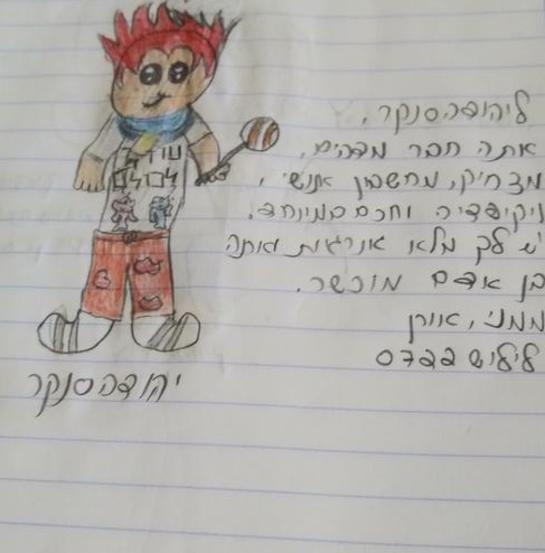 ליהודה סנקר,
אתה חבר מדהים,
מצחיק, מחשבון אנושי,
ויקיפדיה וחכם במיוחד.
יש לך מלא אנרגיות ואתה
בן אדם מוכשר.
ממני, אוורן
יהודה סנקר